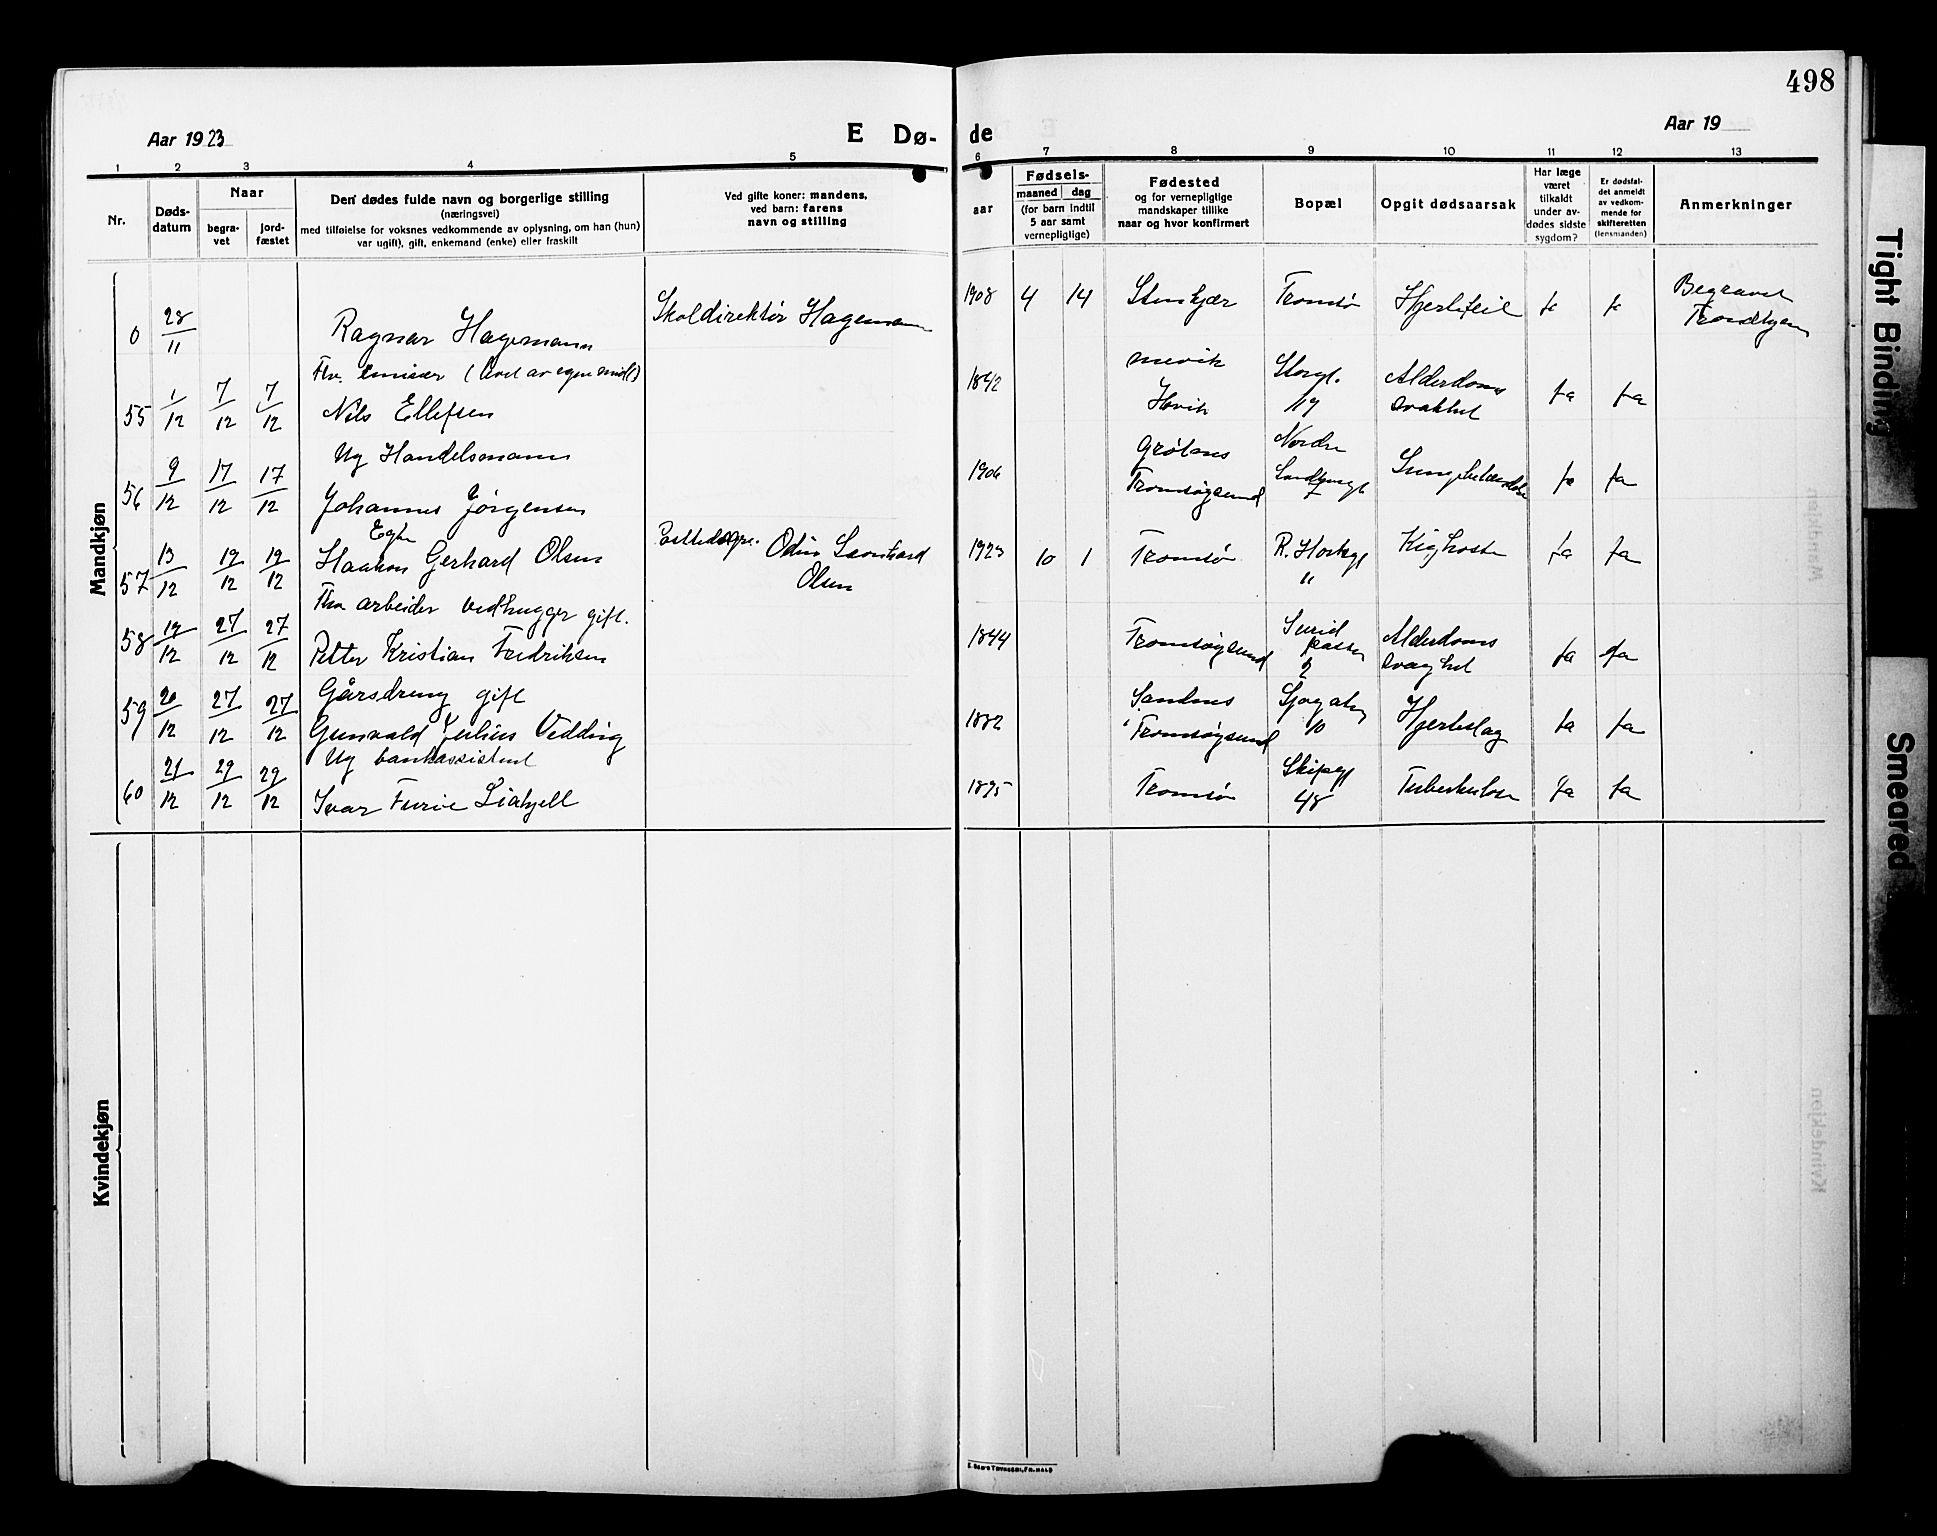 498
Aar 1923
E Dø-
de
Aar 19
1 2 3 4 5 6 7 8 9 10 11 12 13
Nr.
Døds-
datum
Naar
begra-
vet
jord-
fæstet
Den dødes fulde navn og borgerlige stilling
(næringsvei)
med tilføielse for voksnes vedkommende av oplysning, om han (hun)
var ugift), gift, enkemand (enke) eller fraskilt
Ved gifte koner: mandens,
ved barn: farens
navn og stilling
aar
Fødsels-
maaned dag
(for barn indtil
5 aar samt
vernepligtige)
Fødested
og for vernepligtige
mandskaper tillike
naar og hvor konfirmert
Bopæl
Opgit dødsaarsak
Har læge
været
tilkaldt
under av-
dødes sidste
sygdom?
Er dødsfal-
det anmeldt
av vedkom-
mende for
skifteretten
(lensmanden)
Anmerkninger
Mandkjøn
0 28/11 Ragnar Hagemann Skoldirektør Hagemann 1908 4 14 Stenkjær Tromsø Hjertefeil ja ja Begravet
Trondhjem
Fhv. emisær (levet av egne midl.)
55 1/12 7/12 7/12 Nils Ellefsen 1842 Storgt. 119 Alderdoms
svakhet ja ja
Ug Handelsmann
56 9/12 17/12 17/12 Johannes Jørgensen 1906 Grøtnes
Tromsøysund Nordre ja ja
Egte
57 13/12 19/12 19/12 Haakon Gerhard Olsen Odin Leonhard
Olsen 1923 10 1 Tromsø Kighoste ja ja
Fhv arbeider vedhugger gift.
58 19/12 27/12 27/12 Petter Kristian Fredriksen 1844 Tromsøysund 2 Alderdoms
svaghet ja ja
Gårsdreng gift
59 20/12 27/12 27/12 Gunvald Julius Vedding 1882 Sandnes
i Tromsøysund Sjøgaten
10 Hjerteslag ja ja
Ug bankassistent
60 21/12 29/12 29/12 Ivar Liakjell 1895 Tromsø Skipsgt
48 Tuberkulose ja ja
Kvindekjøn
Tight Binding
Smeared